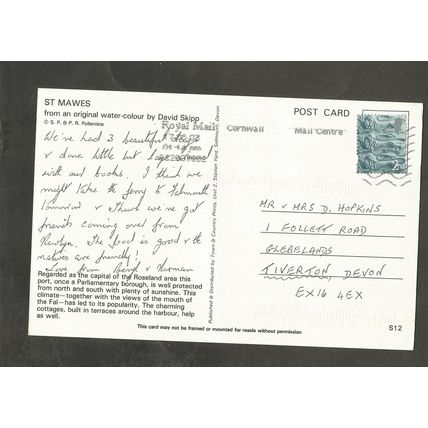 ST MAWES
from an original water-colour by David Skipp
© S. P. & P. R. Pollentine
POST CARD
Royal Mail
Cornwall
Mail Centre
2nd
We've had 3 beautiful days
& done little but
with our books. I think we
might take the ferry to Falmouth
tomorrow & Thurs we've got
friends coming over from
Newlyn. The food is good & the
natives are friendly!
Love from Beryl & Norman
Regarded as the capital of the Roseland area this
port, once a Parliamentary borough, is well protected
from north and south with plenty of sunshine. This
climate—together with the views of the mouth of
the Fal—has led to its popularity. The charming
cottages, built in terraces around the harbour, help
as well.
Published & Distributed by Town & Country Prints, Unit 2, Station Yard, Devon
MR & MRS D. HOPKINS
1 FOLLETT ROAD
GLEBELANDS
TIVERTON, DEVON
EX16 4EX
This card may not be framed or mounted for resale without permission
S12